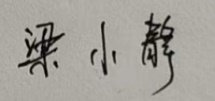 梁小静